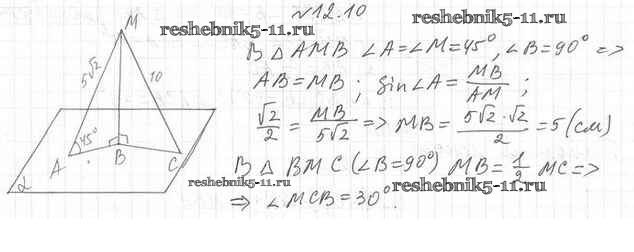 №12.10
reshebnik5-11.ru
reshebnik5-11.ru
M
5√2
10
45°
A
B
C
α
В △ AMB ∠A=∠M=45°, ∠B=90° =>
AB=MB; Sin∠A = MB/AM;
√2/2 = MB/5√2 => MB = 5√2·√2/2 = 5 (см)
В △ BMC (∠B=90°) MB = 1/2 MC =>
reshebnik5-11.ru
reshebnik5-11.ru
=> ∠MCB=30°.